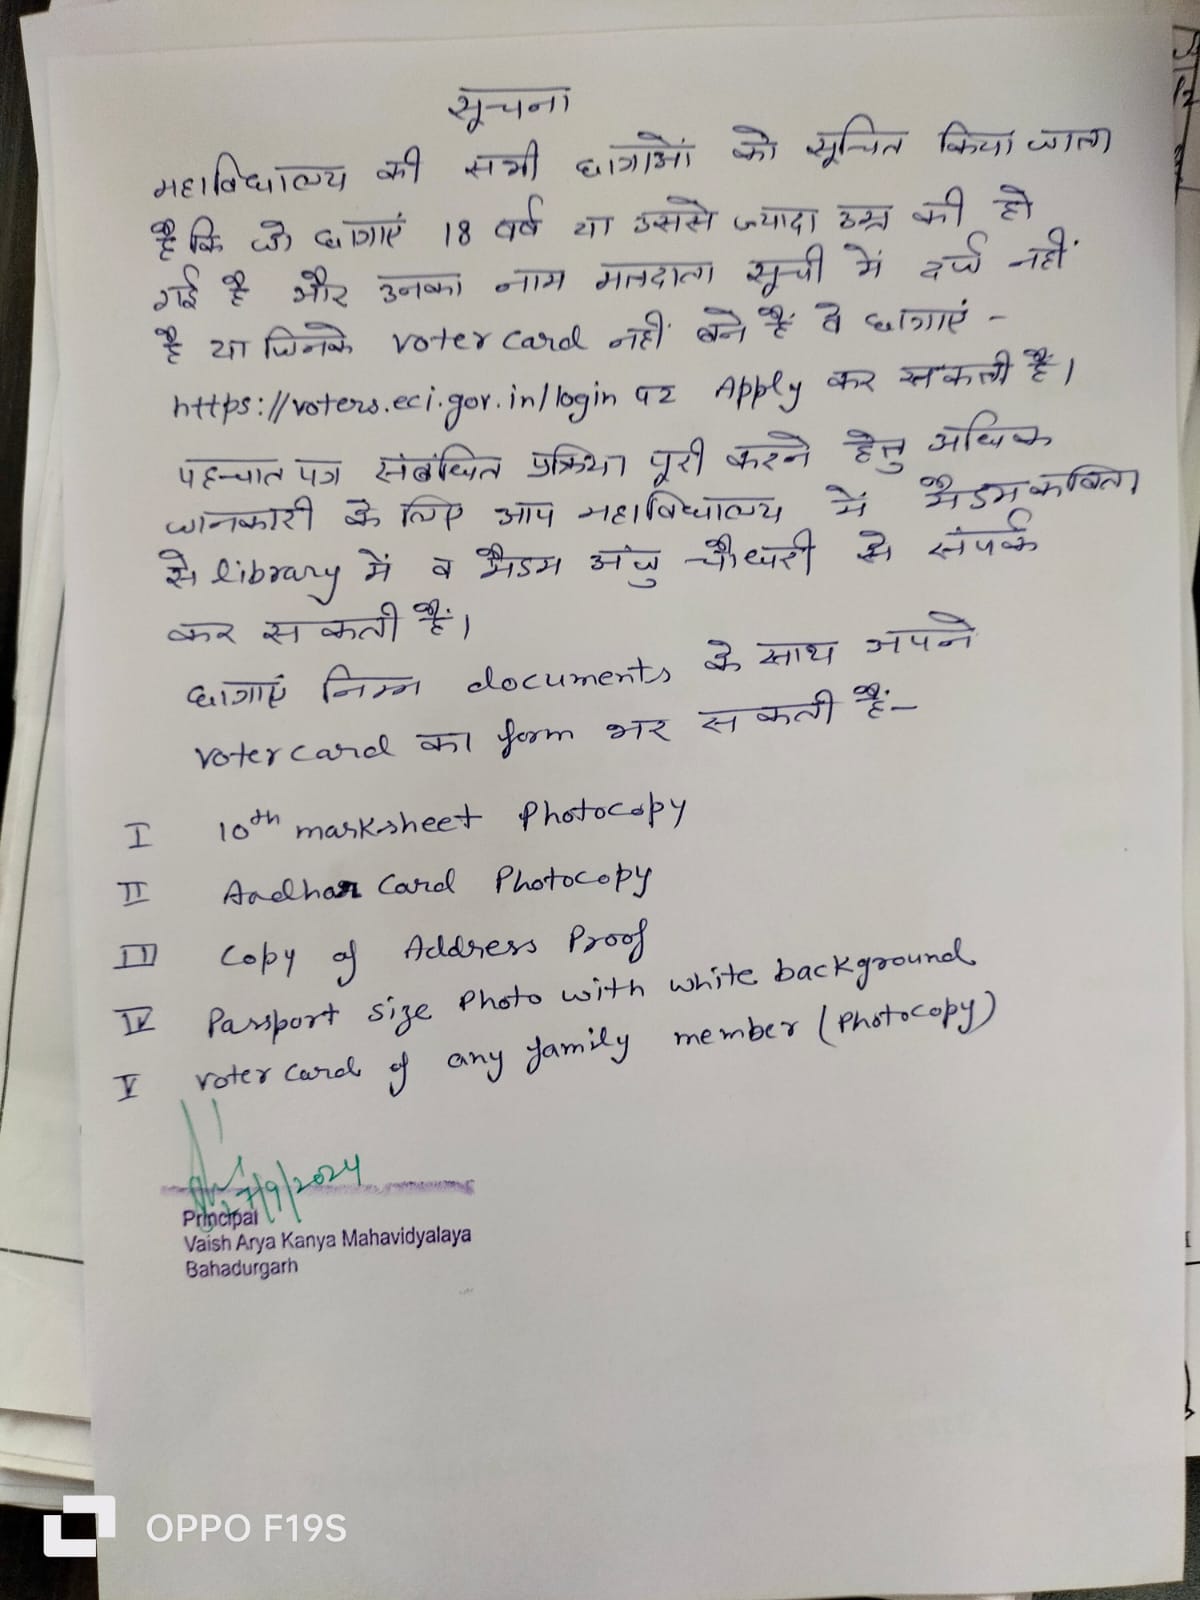 सूचना
महाविद्यालय की सभी छात्राओं को सूचित किया जाता
है कि जो छात्राएं 18 वर्ष या उससे ज्यादा उम्र की हो
गई है और उनका नाम मतदाता सूची में दर्ज नहीं
है या जिनके voter card नहीं बने हैं वे छात्राएं -
https://voters.eci.gov.in/login पर Apply कर सकती है।
पहचान पत्र संबंधित प्रक्रिया पूरी करने हेतु अधिक
जानकारी के लिए आप महाविद्यालय में मैडम कविता
से library में व मैडम अंजु चौधरी से संपर्क
कर सकती हैं।
छात्राएं निम्न documents के साथ अपने
voter card का form भर सकती हैं-
I 10th marksheet Photocopy
II Aadhar Card Photocopy
III Copy of Address Proof
IV Passport size Photo with white background
V voter card of any family member (Photocopy)
27/9/2024
Principal
Vaish Arya Kanya Mahavidyalaya
Bahadurgarh
OPPO F19S